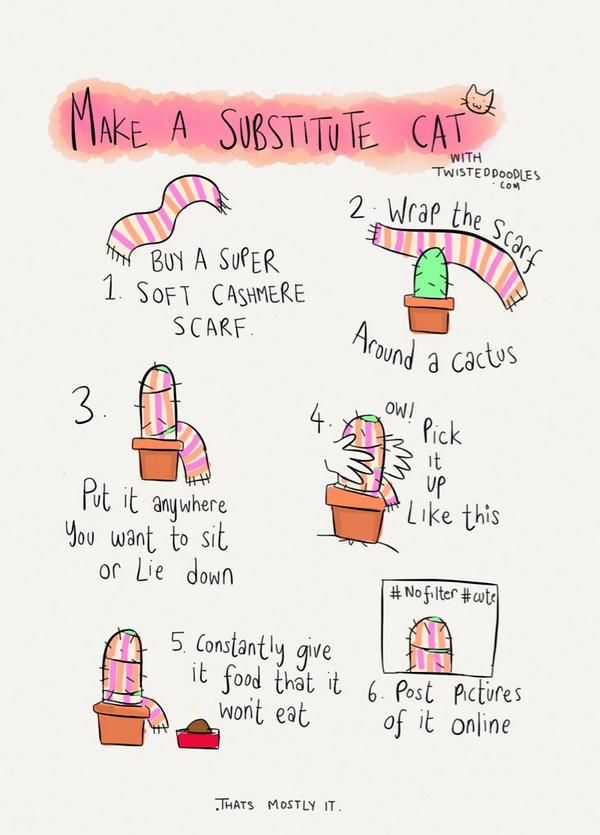 MAKE A SUBSTITUTE CAT
WITH
TWISTEDDOODLES
.COM
BUY A SUPER
1. SOFT CASHMERE
SCARF.
2. Wrap the Scarf
Around a cactus
3.
Put it anywhere
You want to sit
or Lie down
4.
OW!
Pick
it
up
Like this
5. Constantly give
it food that it
won't eat
#Nofilter #cute
6. Post Pictures
of it online
.THATS MOSTLY IT.